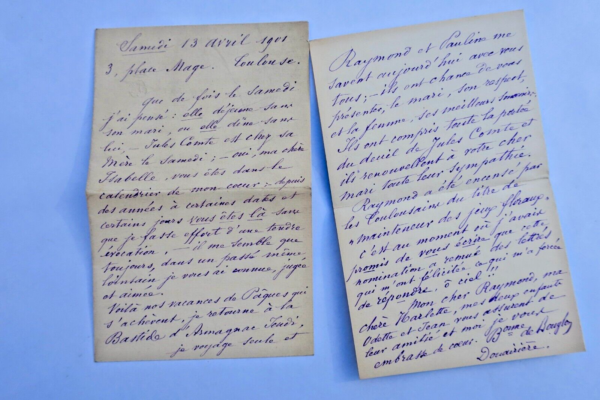 Samedi 13 avril 1901
3, place Mage. Toulouse.
Que de fois le samedi
j'ai pensé : elle déjeune sans
son mari, ou elle dîne sans
lui, - Jules Comte est chez sa
Mère le Samedi ; - oui, ma chère
Isabelle vous êtes dans le
calendrier de mon cœur ; depuis
des années à certaines dates et
certains jours vous êtes là sans
que je fasse effort d'une tendre
évocation, - il me semble que
toujours, dans un passé même
lointain je vous ai connue, jugée
et aimée.
Voilà nos vacances de Pâques qui
s'achèvent, je retourne à la
Bastide d'Armagnac Jeudi,
je voyage seule et
Raymond et Pauline me
savent aujourd'hui avec vous
tous ; - ils ont chance de vous
présenter, le mari, son respect,
et la femme, ses meilleurs souvenirs,
Ils ont compris toute la portée
du deuil de Jules Comte et
ils renouvellent à votre cher
mari toute leur sympathie.
Raymond a été encensé par
les Toulousains du titre de
"mainteneur des jeux floraux",
c'est au moment où j'avais
promis de vous écrire que cette
nomination a remué des lettrés
qui m'ont félicitée ce qui m'a forcée
de répondre, ô ciel !!
Mon cher Raymond, ma
chère Harlette, mes deux enfants
Odette et Jean vous assurent de
leur amitié et moi je vous
embrasse de cœur. Bonne de
Douairière.